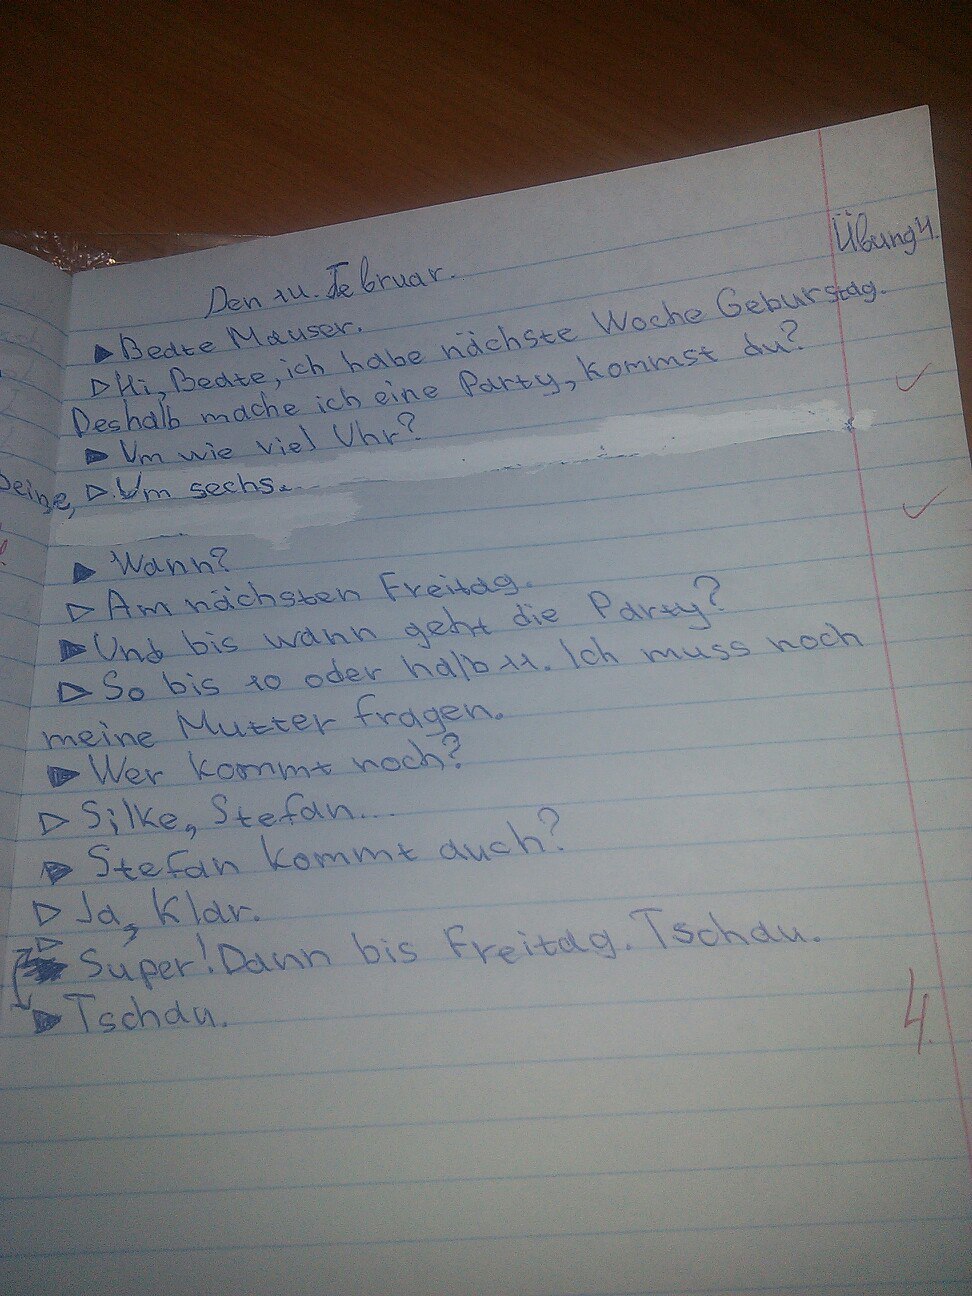 Übung 4.
Den 14. Februar.
▶ Beate Mauser.
▷ Hi, Beate, ich habe nächste Woche Geburstag.
Deshalb mache ich eine Party, kommst du?
▶ Um wie viel Uhr?
▷ Um sechs.
▶ Wann?
▷ Am nächsten Freitag.
▶ Und bis wann geht die Party?
▷ So bis 10 oder halb 11. Ich muss noch
meine Mutter fragen.
▶ Wer kommt noch?
▷ Silke, Stefan...
▶ Stefan kommt auch?
▷ Ja, klar.
▷ Super! Dann bis Freitag. Tschau.
▶ Tschau.
4.